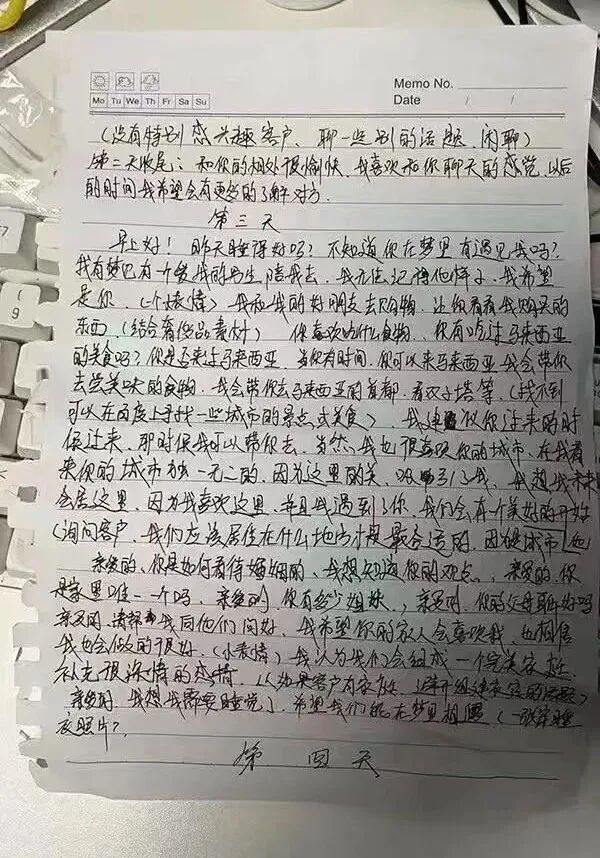 Memo No.
Mo Tu We Th Fr Sa Su
Date / /
(没有特别感兴趣客户、聊一些别的话题、闲聊)
第二天收尾:和你的相处很愉快、我喜欢和你聊天的感觉、以后
的时间我希望会有更多的了解对方.
第三天
早上好!昨天睡得好吗?不知道你在梦里有遇见我吗?
我有梦见有一个爱我的男生陪我去、我无法记得他样子、我希望
是你、(个表情)我和我的好朋友去购物、让你看看我购买的
东西、(结合奢侈品素材)你喜欢吃什么食物、你有吃过马来西亚
的美食吗?你是否来过马来西亚、当你有时间、你可以来马来西亚我会带你
去尝美味的食物、我会带你去马来西亚的首都、看双子塔等、(找不到
可以在百度上寻找一些城市的景点或美食)、我建议你过来的时
候过来、那时候我可以带你去、当然我也很喜欢你的城市、在我看
来你的城市独一无二的、因为这里的美、吸引了我、我想我未来
会居这里、因为我喜欢这里、并且我遇到了你、我们会有个美好的开始
(询问客户、我们应该居住在什么地方才是最合适的、因为是城市
亲爱的、你是如何看待婚姻的、我想知道你的观点、亲爱的、你
是家里唯一一个吗、亲爱的、你有多少姐妹、亲爱的、你的父母都好吗
亲爱的、请帮我同他们问好、我希望你的家人会喜欢我、也相信
我也会做的很好、(小表情)我认为我们会组成一个完美家庭
补充很深情的感情、以 如果客户有家庭、避开组建家庭的话题)
亲爱的、我想我需要睡觉了、希望我们能在梦里相遇(一张穿睡
衣照片?
第四天